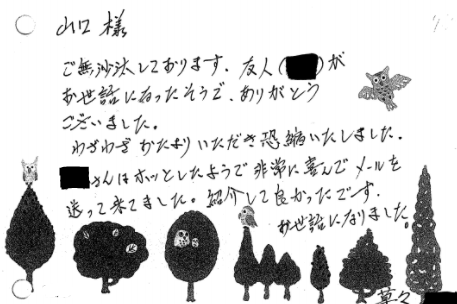 山口 様
ご無沙汰しております。友人( )が
お世話になったそうで、ありがとう
ございました。
わざわざ おたよりいただき恐縮いたしました。
さんはホッとしたようで非常に喜んでメールを
送って来てました。紹介して良かったです。
お世話になりました。
草々